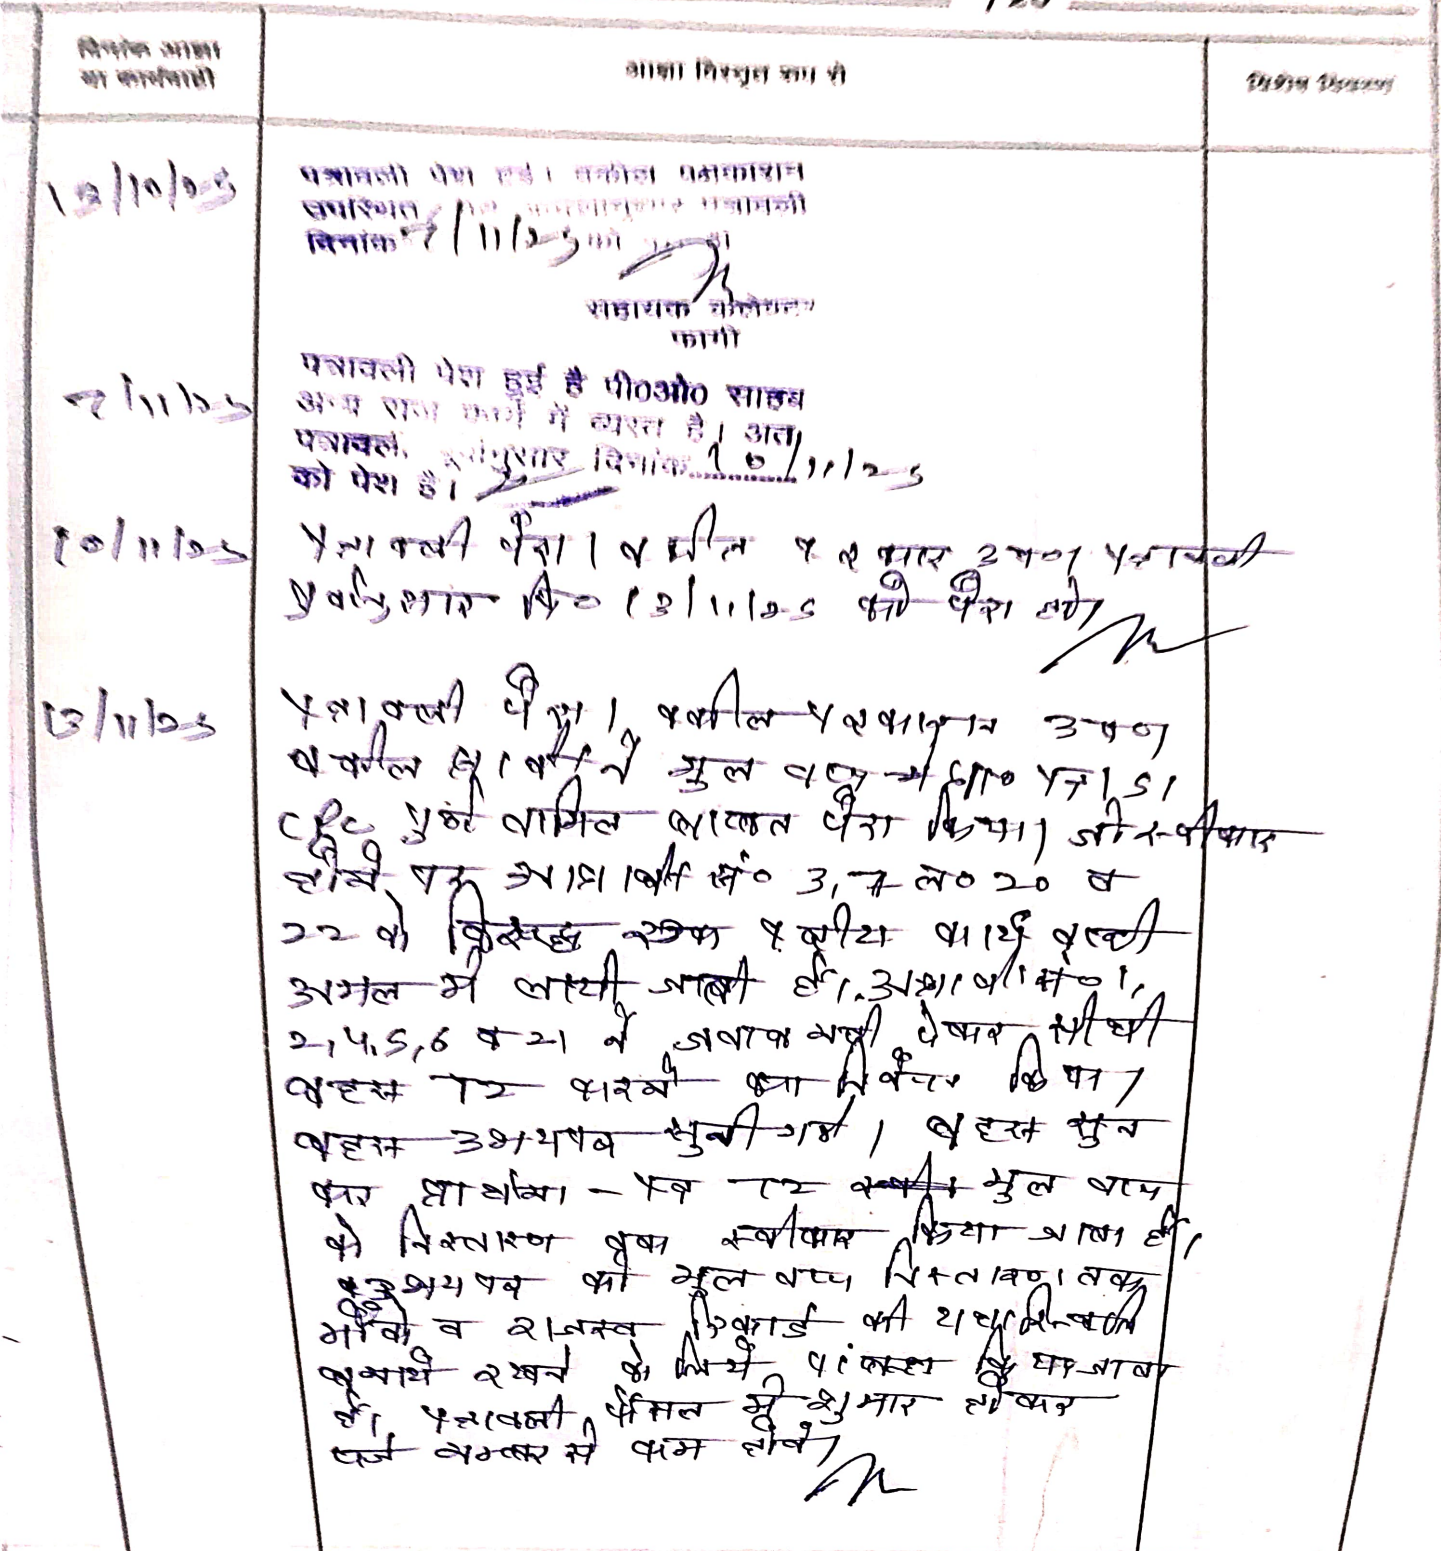 दिनांक आज्ञा
या कार्यवाही
आज्ञा विस्तृत रूप से
विशेष विवरण
13/10/25
पत्रावली पेश हुई। वकील पक्षकारान
उपस्थित पत्रावली
दिनांक 7/11/25 को
सहायक कलेक्टर
फागी
7/11/25
पत्रावली पेश हुई है पी०ओ० साहब
अन्य राज कार्य में व्यस्त है। अतः
पत्रावली पूर्वानुसार दिनांक 10/11/25
को पेश है।
10/11/25
पत्रावली पेश। वकील पक्षकार उप० पत्रावली
पूर्वानुसार दि० 13/11/25 को पेश हो।
13/11/25
पत्रावली पेश। वकील पक्षकारान उप०
वकील प्रार्थी ने मूल वाद में
CPC तामिल पेश किया। जो स्वीकार
होने पर अप्रार्थी सं० 3, 7 ल० 20 व
22 के विरुद्ध एक पक्षीय कार्यवाही
अमल में लायी जाती है। अप्रार्थी सं० 1,
2, 4, 5, 6 व 21 ने जवाब नहीं देकर सीधी
बहस TI करने का निवेदन किया।
बहस उभयपक्ष सुनी गई। बहस सुन
कर प्रार्थना-पत्र TI मूल वाद
के निस्तारण तक स्वीकार किया जाता है।
उभयपक्ष को मूल वाद निस्तारण तक
मौके व राजस्व रिकार्ड की यथास्थिति
बनाये रखने के लिये पाबन्द किया जाता
है। पत्रावली फैसल में शुमार होकर
दर्ज नम्बर से कम होवे।